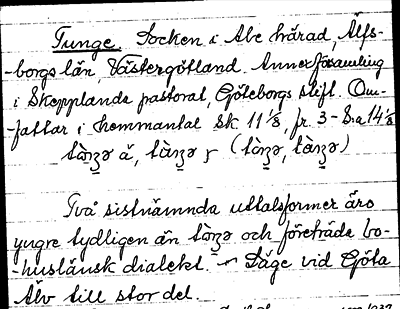 Tunge Socken i Ale härad, Älfs-
-borgs län, Västergötland. Annexförsamling
i Skepplanda pastorat, Göteborgs stift. Om-
-fattar i hemmantal Sk. 11 1/8, fr. 3 - S:a 14 1/8
Två sistnämnda uttalsformer äro
yngre tydligen än och företräda bo-
-huslänsk dialekt. – Läge vid Göta
Älv till stor del.